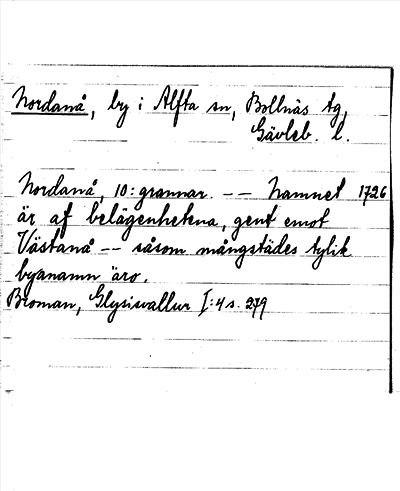 Nordanå, by i Alfta sn, Bollnäs tg,
Gävleb. l.
Nordanå, 10: grannar. -- Namnet 1726
är af belägenhetena, gent emot
Västanå -- såsom mångstädes tylik
byanamn äro.
Broman, Glysisvallur I: 4 s. 279